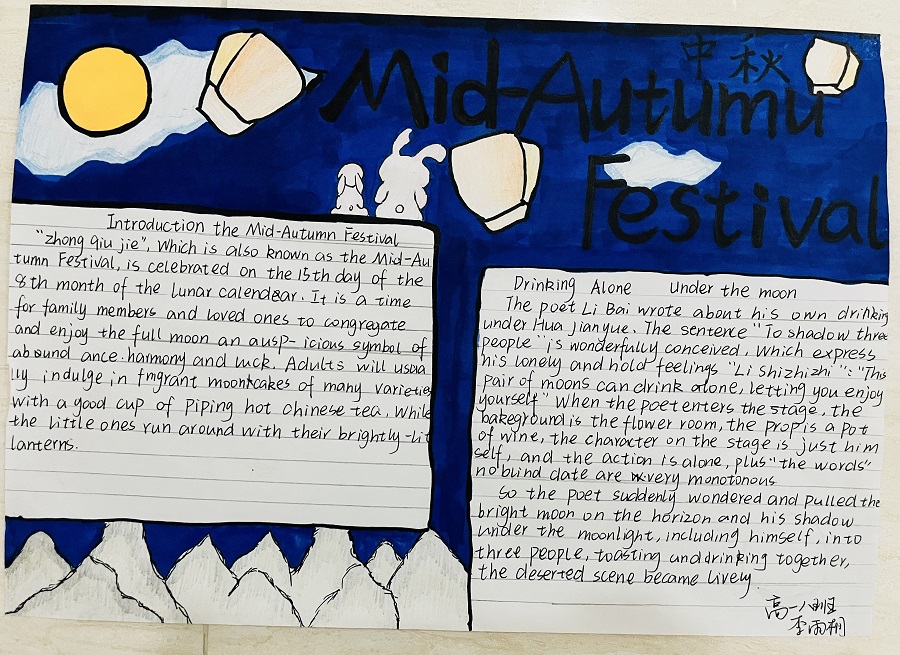 中秋
Mid-Autumu
Festival
Introduction the Mid-Autumn Festival
"zhong qiu jie". Which is also known as the Mid-Au
tumn Festival, is celebrated on the 15th day of the
8th month of the lunar calendar. It is a time
for family members and loved ones to congregate
and enjoy the full moon an ausp- icious symbol of
abound ance.harmony and luck. Adults will usua
lly indulge in fmgrant moontcakes of many varieties
with a good cup of piping hot chinese tea, while
the little ones run around with their brightly-lit
lanterns.
Drinking Alone Under the moon
The poet Li Bai wrote about his own drinking
under Hua jianyue. The sentence "To shadow three
people" is wonderfully conceived, which express
his lonely and hold feelings "Li shizhizhi": "This
pair of moons can drink alone, letting you enjoy
yourself" When the poet enters the stage, the
bakeground is the flower room, the prop is a pot
of wine, the character on the stage is just him
self, and the action is alone, plus "the words"
no blind date are very monotonous
So the poet suddenly wondered and pulled the
bright moon on the horizon and his shadow
under the moonlight, including himself, into
three people, toasting and drinking together,
the deserted scene became lively.
高一八班
李雨翔